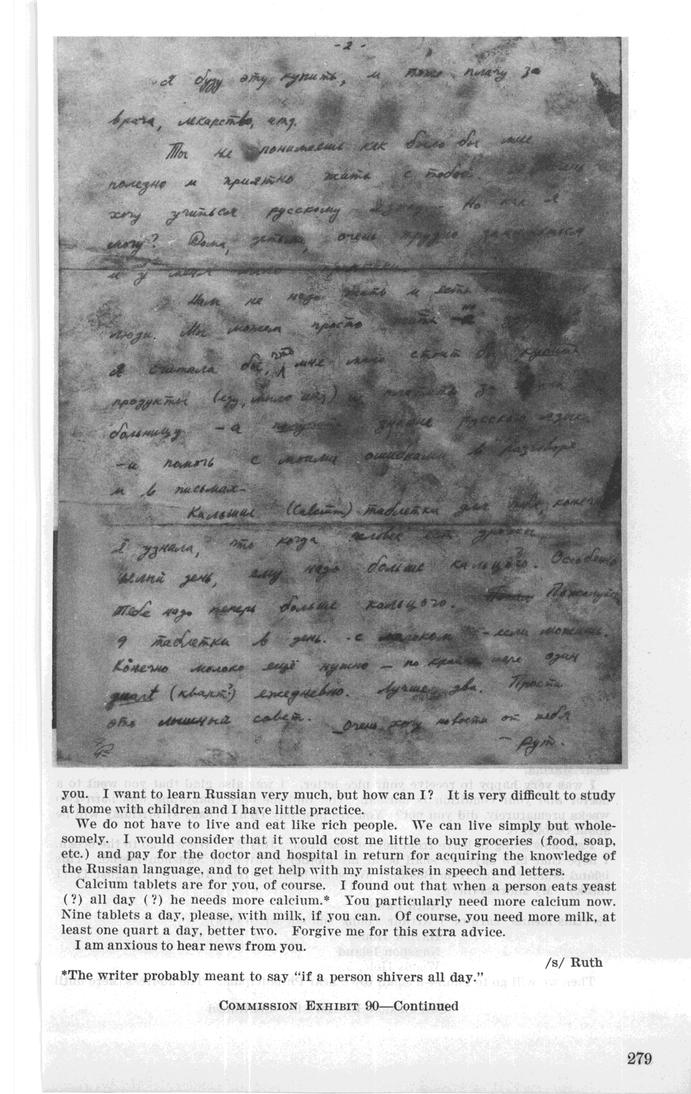 - 2 -
Я буду эту купить, и тоже плачу за
врача, лекарство, итд.
Ты не понимаешь как было бы мне
полезно и приятно жить с тобой.
хочу учиться русскому языку. Но как я
могу? Дома, детьми, очень трудно заниматься
и у меня мало практики
Нам не надо жить и есть
люди. Мы можем просто
Я считала бы, что мне мало стоит бы
продукты (еду, мыло итд) и за
больницу - а русского язык
- и помочь с моими ошибками в разговоре
и в письмах -
(Calcium) таблетки для тебя, конечно
Я узнала, что когда человек ест дрожи
целый день, ему надо больше кальцого. Особенно
тебе надо теперь больше кальцого. Пожалуйста
9 таблетки в день. с молоком - если можешь.
Конечно молоко ещё нужно - по крайне мере один
quart (кварт?) ежедневно. Лучше два. Прости
это лишный совет. Очень хочу новости от тебя
- Рут.
you. I want to learn Russian very much, but how can I? It is very difficult to study
at home with children and I have little practice.
We do not have to live and eat like rich people. We can live simply but whole-
somely. I would consider that it would cost me little to buy groceries (food, soap,
etc.) and pay for the doctor and hospital in return for acquiring the knowledge of
the Russian language, and to get help with my mistakes in speech and letters.
Calcium tablets are for you, of course. I found out that when a person eats yeast
(?) all day (?) he needs more calcium.* You particularly need more calcium now.
Nine tablets a day, please, with milk, if you can. Of course, you need more milk, at
least one quart a day, better two. Forgive me for this extra advice.
I am anxious to hear news from you.
/s/ Ruth
*The writer probably meant to say "if a person shivers all day."
COMMISSION EXHIBIT 90—Continued
279